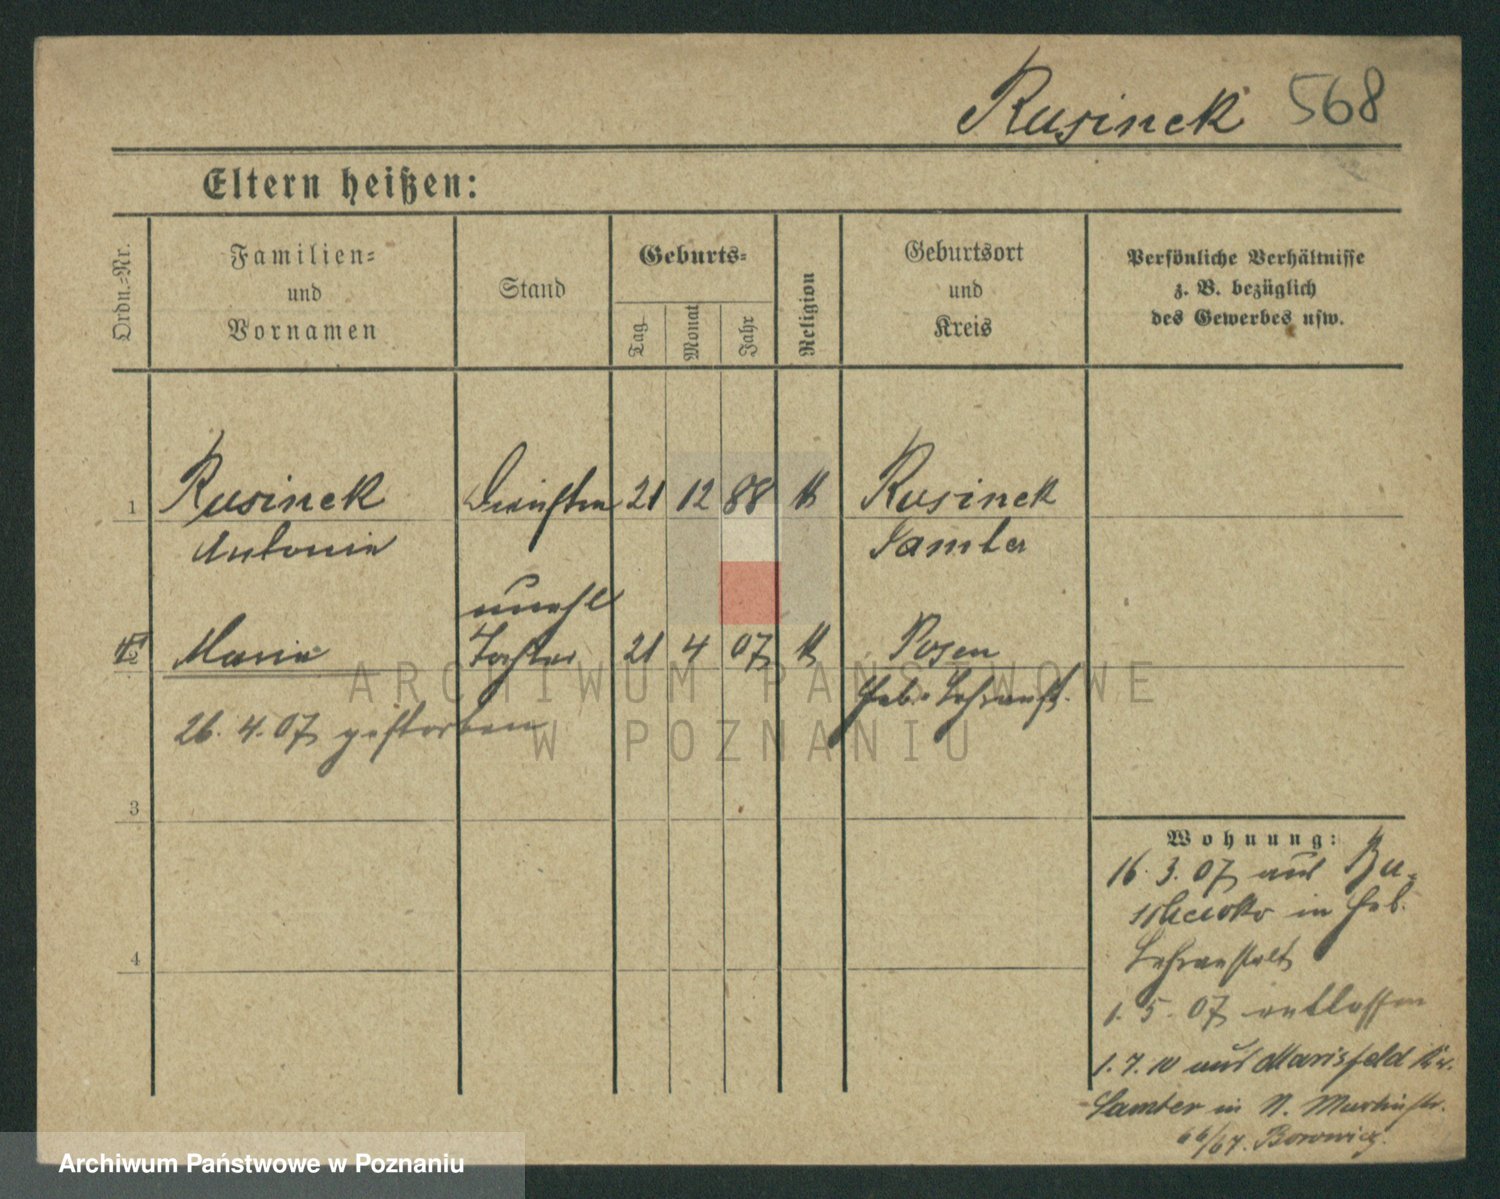 Rusinek 568
Eltern heißen:
Ordn.-Nr.
Familien-
und
Vornamen
Stand
Geburts-
Tag
Monat
Jahr
Religion
Geburtsort
und
Kreis
Persönliche Verhältnisse
z. B. bezüglich
des Gewerbes usw.
1 Rusinek 21 12 88 k Rusinek
Antonie Samter
unehl
Marie Tochter 21 4 07 k Posen
Heb. Lehranst.
26. 4. 07 gestorben
3
Wohnung:
16. 3. 07 aus
in Heb.
Lehranstalt
4
1. 5. 07 entlassen
1. 7. 10 aus Marisfeld Kr.
Samter in N. Martinstr.
66/67.
ARCHIWUM PAŃSTWOWE
W POZNANIU
Archiwum Państwowe w Poznaniu